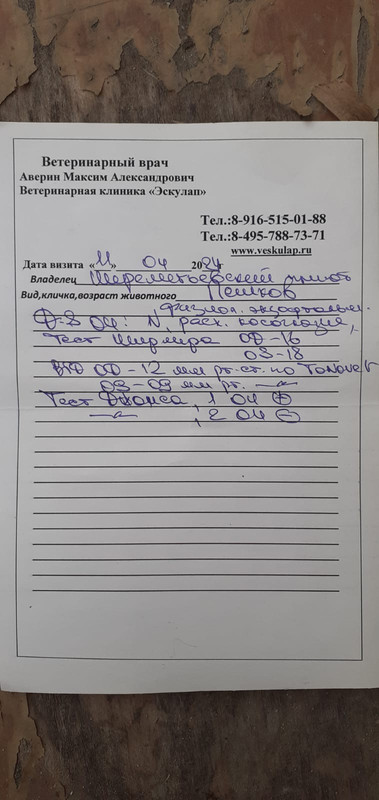 Ветеринарный врач
Аверин Максим Александрович
Ветеринарная клиника «Эскулап»
Тел.:8-916-515-01-88
Тел.:8-495-788-73-71
www.veskulap.ru
Дата визита «11» 04 2024
Владелец Шереметьевский приют
Вид,кличка,возраст животного Пешков
физиол. экзофтальм.
D-S OU: N, расх. косоглазие,
Тест Ширмера OD-16
OS-18
ВГД OD-12 мм рт.ст. по TonoVet
OS-09 мм рт. —"—
Тест Джонса, 1 OU ⊕
—"—, 2 OU ⊖